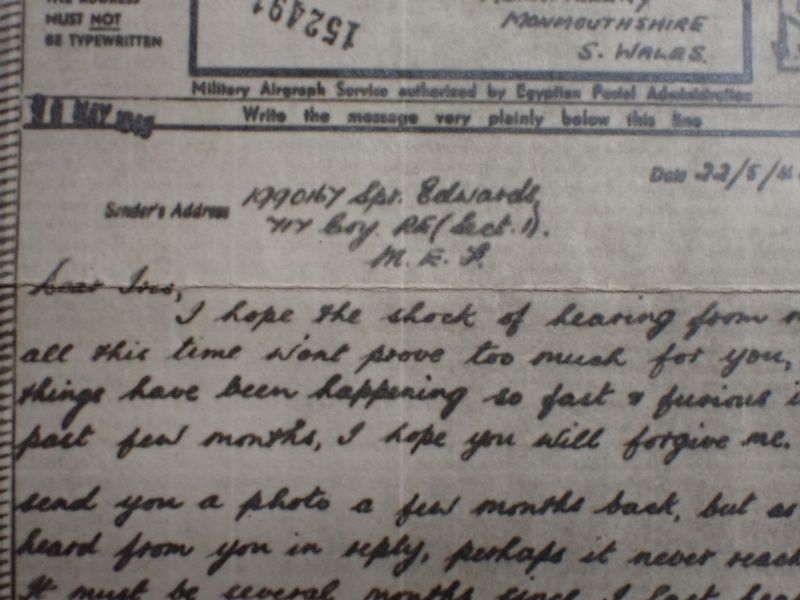 THE ADDRESS
MUST NOT
BE TYPEWRITTEN
152491
MONMOUTHSHIRE
S. WALES.
Military Airgraph Service authorized by Egyptian Postal Administration
MAY
Write the message very plainly below this line
Date 22/5/4
Sender's Address 1990167 Spr. Edwards,
717 Coy. RE (Sect. 1).
M. E. F.
Dear Iris,
I hope the shock of hearing from
all this time wont prove too much for you,
things have been happening so fast & furious
past few months, I hope you will forgive me.
send you a photo a few months back, but as
heard from you in reply, perhaps it never reach
It must be several months since I last hea